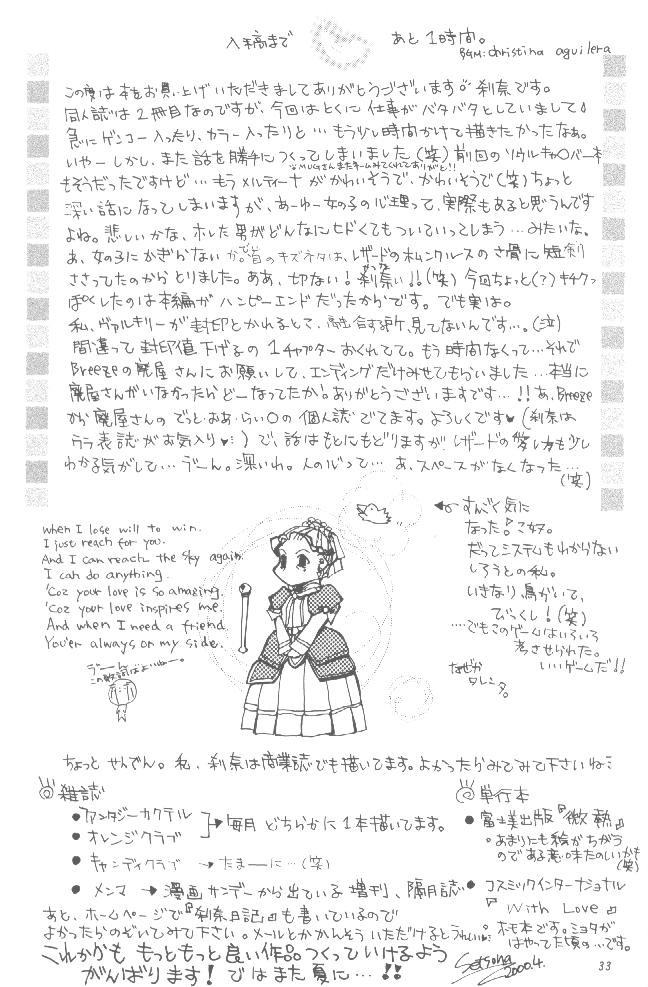 入稿まで あと1時間。
BGM: christina aguilera
この度は本をお買い上げいただきましてありがとうございます。刹奈です。
同人誌は2冊目なのですが、今回はとくに仕事がバタバタとしていまして
急にゲンコー入ったり、カラー入ったりと…もう少し時間かけて描きたかったなぁ。
いやーしかし、また話を勝手につくってしまいました(笑)前回のソウルキャ○バー本
もそうだったですけど…もうメルティーナがかわいそうで、かわいそうで(笑)ちょっと
深い話になってしまいますが、あーゆー女の子の心理って、実際もあると思うんです
よね。悲しいかな、ホレた男がどんなにヒドくてもついていってしまう…みたいな。
あ、女の子にかぎらないか。で、首のキズネタは、レザードのホムンクルスのさ骨に短剣
ささってたのからとりました。ああ、切ない!刹奈い!!(笑)今回ちょっと(?)キチクっ
ぽくしたのは本編がハッピーエンドだったからです。でも実は。
私、ヴァルキリーが封印とかれるとこ、融合する所、見てないんです…。(泣)
間違って封印値下げるの1チャプターおくれてて。もう時間なくって…それで
Breezeの廃屋さんにお願いして、エンディングだけみせてもらいました…本当に
廃屋さんがいなかったらどーなってたか!ありがとうございますです…!!あ、Breeze
から廃屋さんのでっと・おあ・らい○の個人誌でてます。よろしくです♥(刹奈は
うら表紙がお気入り♥)で、話はもとにもどりますがレザードの愛し方も少し
わかる気がして…うーん。深いわ。人の心って…あ、スペースがなくなった…
(笑)
when I lose will to win.
I just reach for you.
And I can reach the sky again.
I can do anything.
'Coz your love is so amazing.
'Coz your love inspires me.
And when I need a friend
You'er always on my side.
うーん
この歌詞はよいねー。
←すんごく気に
なった『乙奴。
だってシステムもわからない
しろうとの私。
いきなり鳥がいて、
びっくし!(笑)
…でもこのゲームはいろいろ
考させられた。
いいゲームだ!!
なぜか
タレシタ。
ちょっとせんでん。私、刹奈は商業誌でも描いてます。よかったらみてみて下さいね
◎雑誌
●ファンタジーカクテル
●オレンジクラブ
→毎月どちらかに1本描いてます。
●キャンディクラブ →たまーに…(笑)
●メンマ →漫画サンデーから出ている増刊、隔月誌
◎単行本
●富士美出版『微熱』
○あまりにも絵がちがう
のである意味たのしいかも
(笑)
●コスミックインターナショナル
『With Love』
○ホモ本です。ミヨタが
はやってた頃の…です。
あと、ホームページで『刹奈日記』も書いているので
よかったらのぞいてみて下さい。メールとかかんそういただけるとうれしい
これからも もっともっと良い作品つくっていけるよう
がんばります!ではまた夏に…!!
Setsuna
2000.4.
33